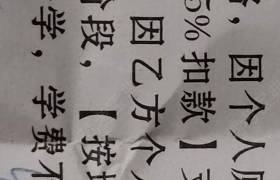 ，因个人原
5%扣款】
因乙方个人
阶段，【按
学，学费不